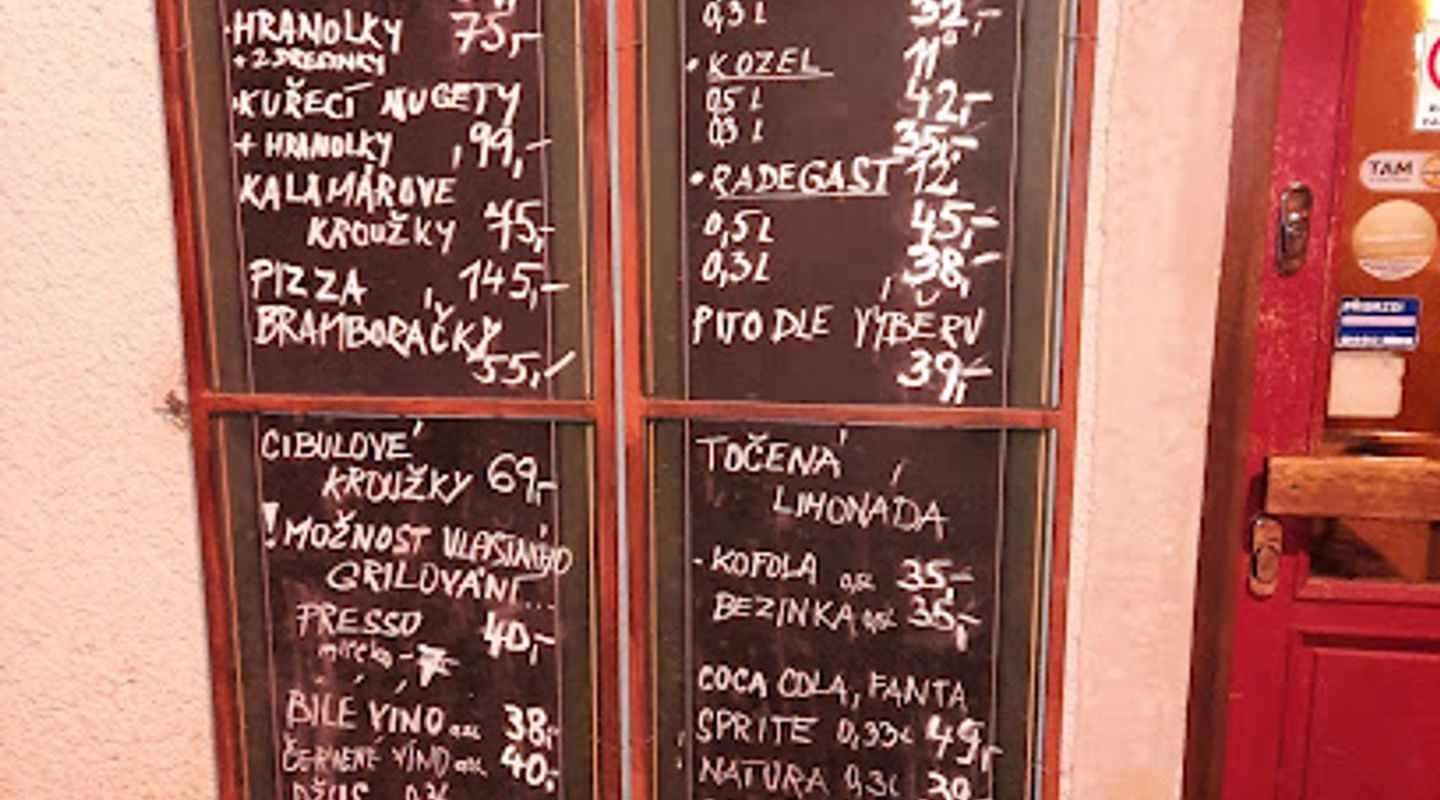 HRANOLKY 75,-
+ 2 PŘESÍNKY
KUŘECÍ NUGETY
+ HRANOLKY 99,-
KALAMÁROVE
KROUŽKY 75,-
PIZZA 145,-
BRAMBORÁČKY
55,-
CIBULOVÉ
KROUŽKY 69,-
! MOŽNOST VLASTNÍHO
GRILOVÁNÍ...
PRESSO 40,-
mléko - 7,-
BÍLÉ VÍNO 38,-
ČERVENÉ VÍNO 40,-
DŽUS
0,3 L 32,-
• KOZEL 11°
0,5 L 42,-
0,3 L 35,-
• RADEGAST 12°
0,5 L 45,-
0,3 L 38,-
PITO DLE VÝBĚRU
39,-
TOČENÁ
LIMONÁDA
- KOFOLA 35,-
BEZINKA 35,-
COCA COLA, FANTA
SPRITE 0,33L 49,-
NATURA 0,3L 39,-
TAM